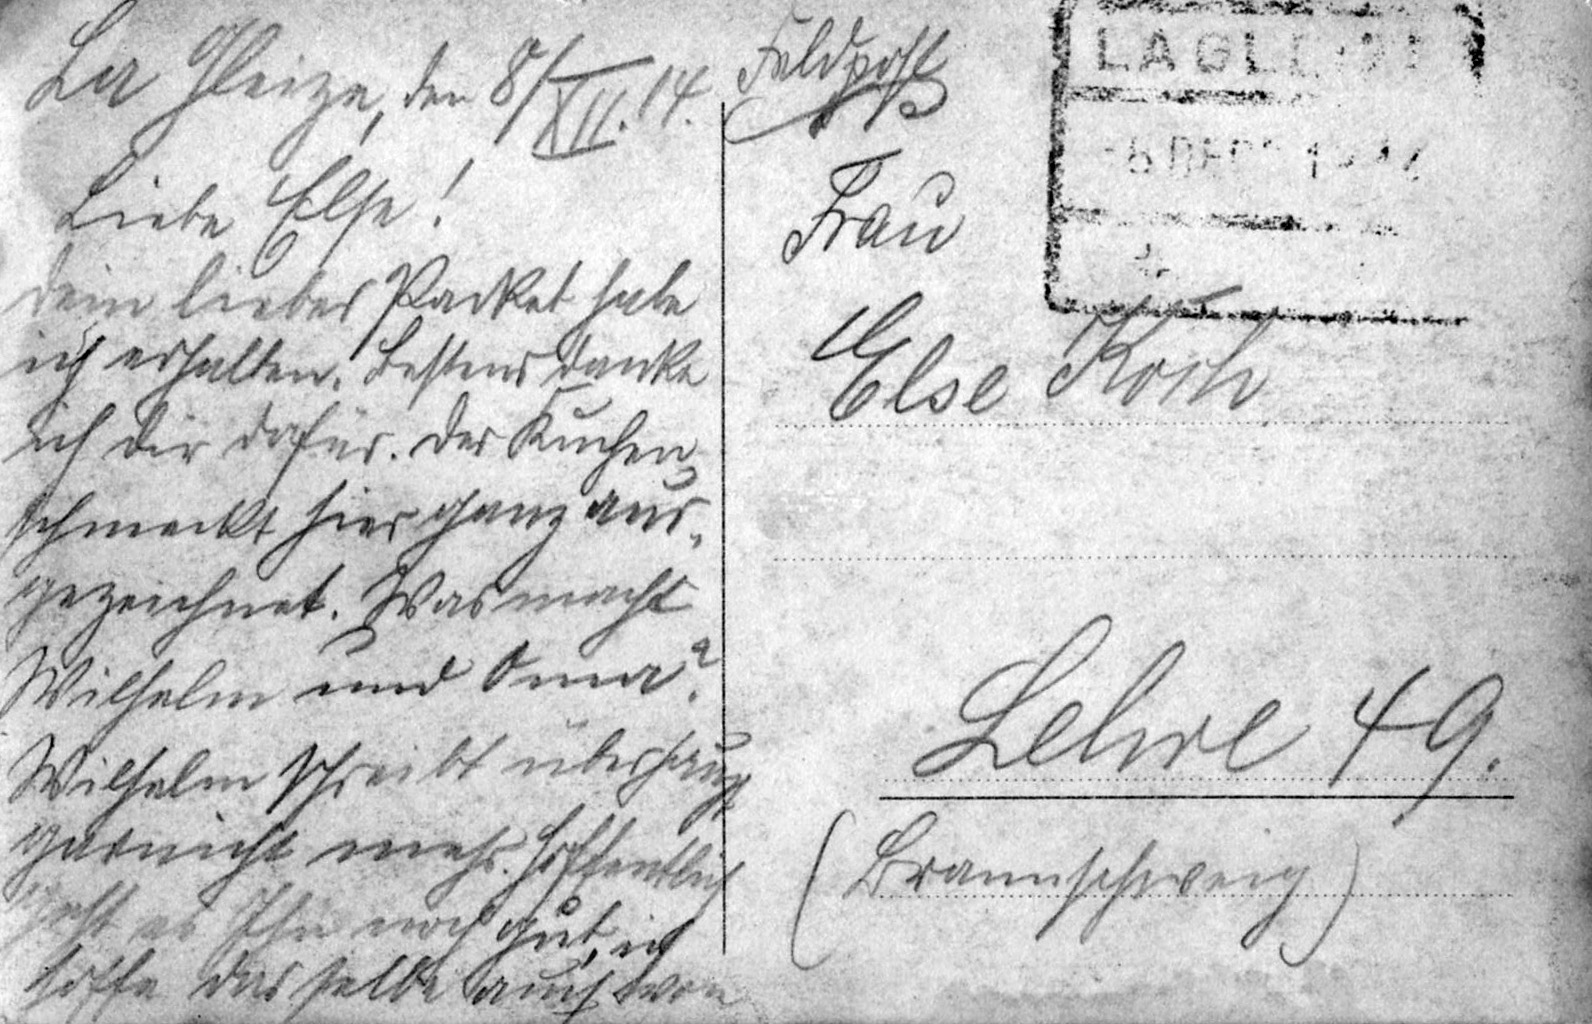 La Gleize, den 8/XII.14.
Liebe Else!
dein liebes Packet habe
ich erhalten. Bestens danke
ich dir dafür. Der Kuchen
schmeckt hier ganz aus-
gezeichnet. Was macht
Wilhelm und Oma?
Wilhelm schreibt überhaupt
garnicht mehr. Hoffentlich
geht es Ihm noch gut, ich
hoffe das selbe auch von
Feldpost
Frau
Else Koch
Lehre 49.
(Braunschweig)